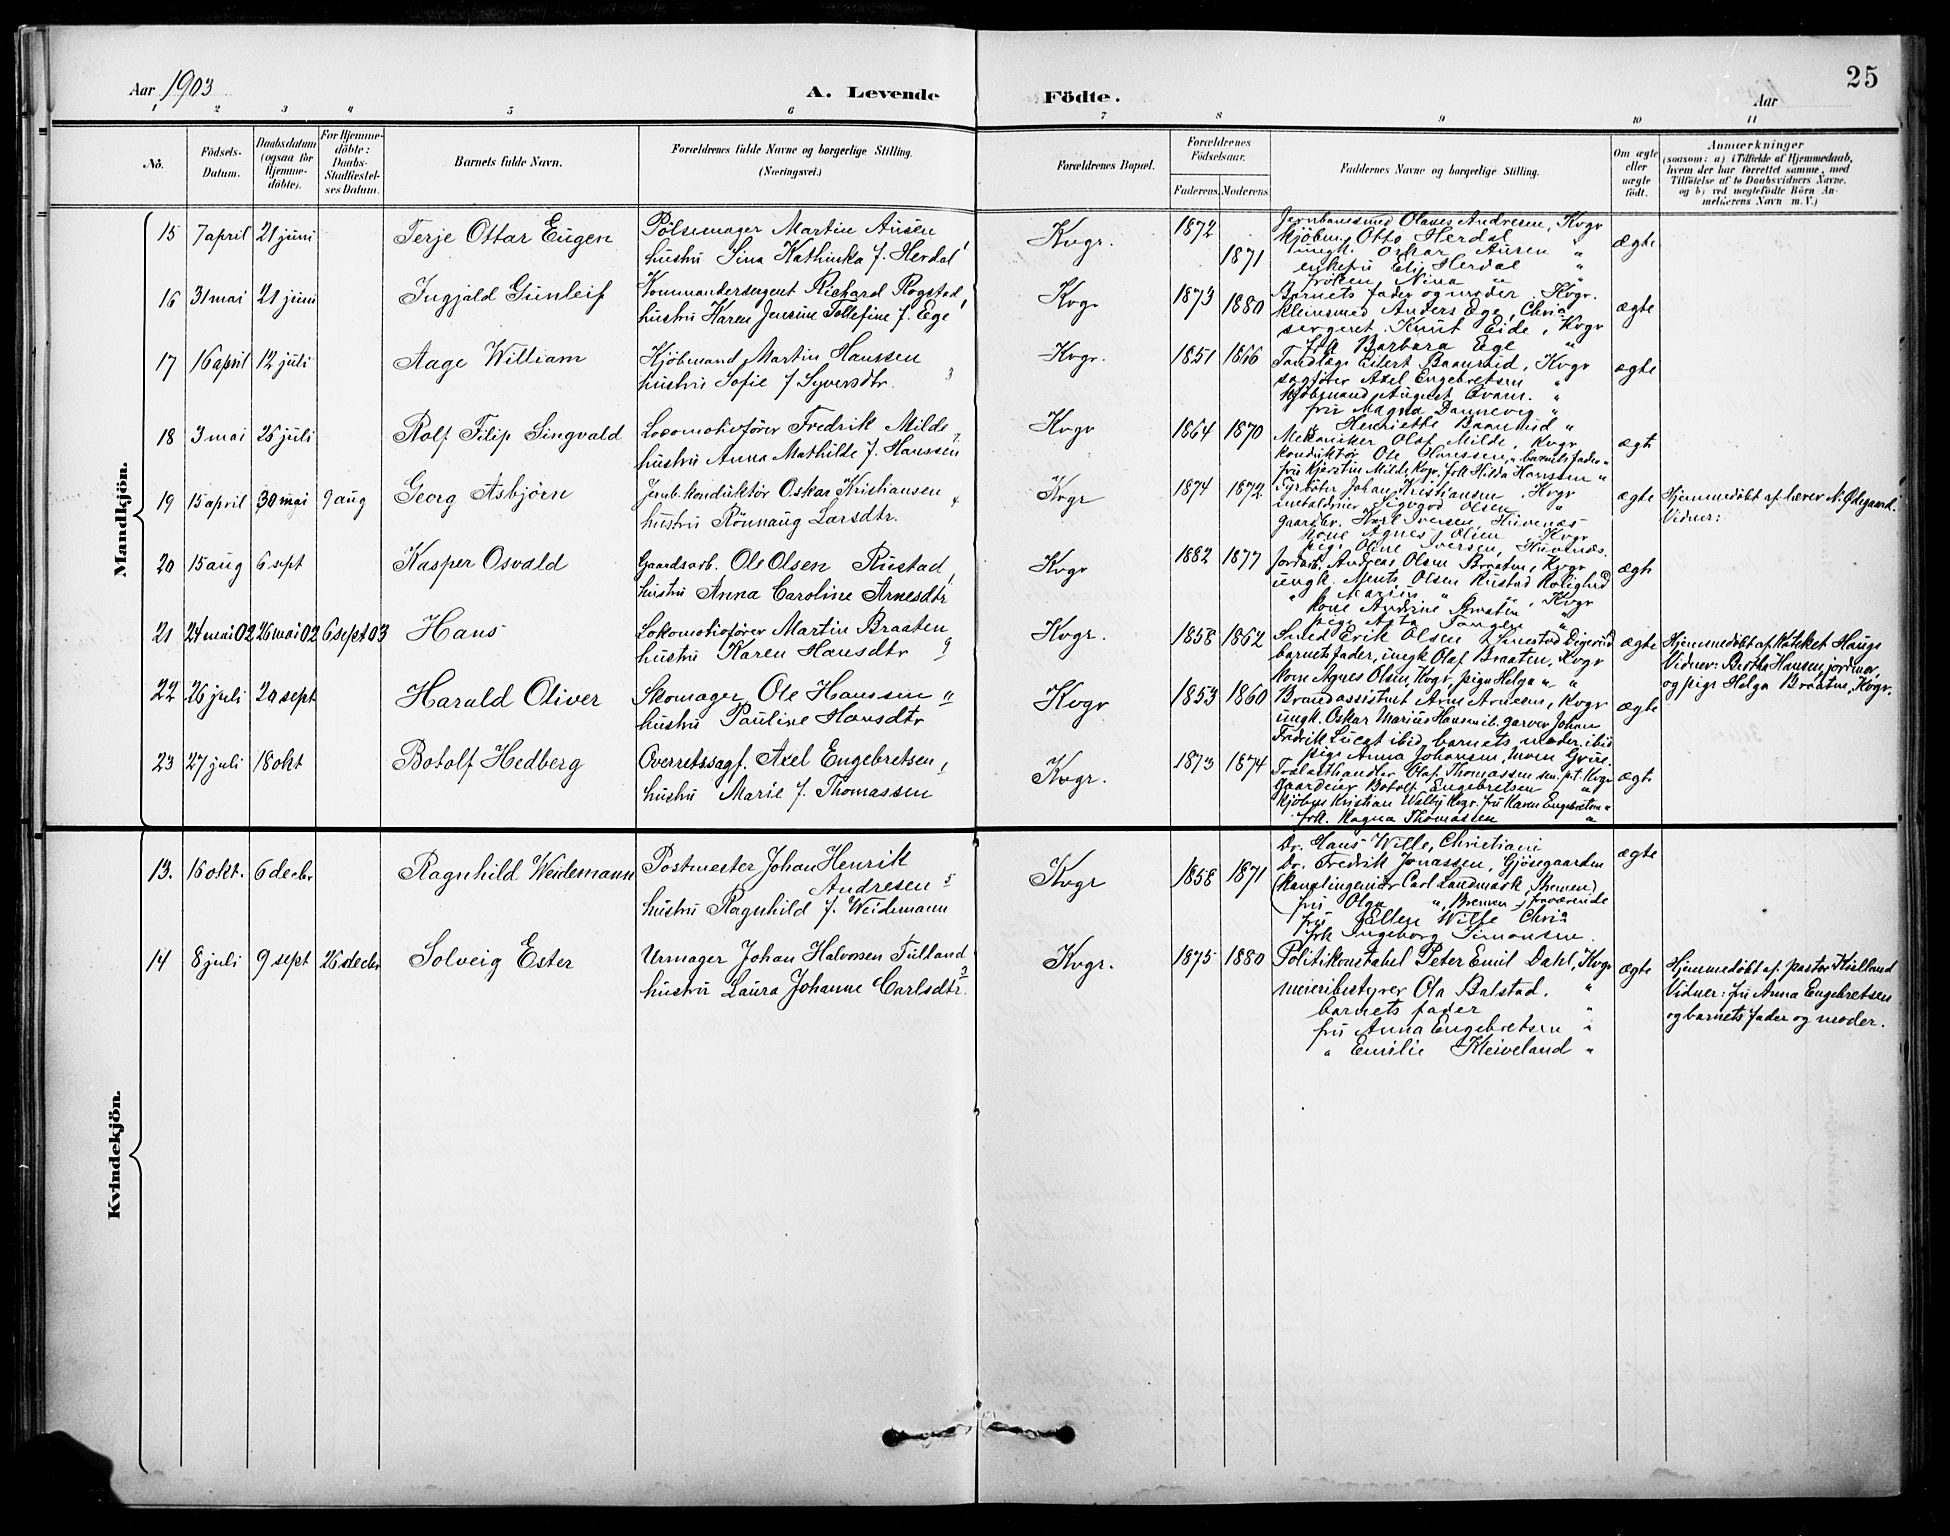 25
Aar 1903
A. Levende
Födte.
Aar
1 2 3 4 5 6 7 8 9 10 11
No.
Födsels-Datum.
Daabsdatum (ogsaa for Hjemme-döbte).
For Hjemme-döbte: Daabs-Stadfæstel-ses Datum.
Barnets fulde Navn.
Forældrenes fulde Navne og borgerlige Stilling.
(Næringsvei.)
Forældrenes Bopæl.
Forældrenes Födselsaar.
Faderens. Moderens.
Faddernes Navne og borgerlige Stilling.
Om ægte eller uægte födt.
Anmærkninger
(saasom: a) i Tilfælde af Hjemmedaab, hvem der har forrettet samme, med Tilföielse af to Daabsvidners Navne, og b) ved uegtefödte Börn An-melderens Navn m. V.)
Mandkjön.
15 7 april 21 juni Terje Ottar Eugen
Pölsemager Martin Ausen
hustru Sina Kathinka f. Herdal
Kvgr. 1872 1871
Jernbanesmed Olaves Andresen, Kvgr
kjöbm. Otto Herdal "
ungk. Oskar Ausen "
enkefru Eli Herdal "
fröken Nina "
ægte
16 31 mai 21 juni Ingjald Gunleif
Kommandersergent Rickard Rogstad
hustru Karen Jensine Tollefine f. Ege
Kvgr 1873 1880
Barnets fader og moder, Kvgr.
kleinsmed Anders Ege, Chria
sergent Knut Eide, Kvgr
frk Barbara Ege "
ægte
17 16 april 12 juli Aage William
Kjöbmand Martin Hanssen
hustru Sofie f Syversdtr. 3
Kvgr. 1851 1866
Tandlæge Eilert Baanrud, Kvgr
sagförer Axel Engebretsen "
kjöbmand August Qvam. "
fru Magna Dannevig "
" Henriette Baanrud "
ægte
18 3 mai 26 juli Rolf Filip Singvald
Locomotivförer Fredrik Milde
hustru Anna Mathilde f. Hanssen
Kvgr 1864 1870
Mekaniker Olaf Milde, Kvgr
konduktör Ole Hanssen, " barnets fader "
fru Kjerstin Milde Kvgr, frk Hilda Hanssen "
ægte
19 15 april 30 mai 9 aug Georg Asbjörn
Jernb. konduktör Oskar Kristiansen 4
hustru Rönnaug Larsdtr.
Kvgr 1874 1872
Fyrböter Johan Kristiansen, Kvgr
Olsen "
gaardbr. Karl Iversen, Huvenæs
kone Agnes Olsen, Kvgr
pige Oline Iversen, Huvenæs.
ægte
Hjemmedöbt af lærer N. Ödegaard.
Vidner:
20 15 aug 6 sept Kasper Osvald
Gaardsarb. Ole Olsen Rustad
hustru Anna Caroline Arnesdtr
Kvgr 1882 1877
Jordarb. Andreas Olsen Braaten, Kvgr
ungk. Ments Olsen Rustad Rolighed
" Marius " , Kvgr
kone Andrine Braaten "
pige Asta Tangen "
ægte
21 24 mai 02 26 mai 02 6 sept 03 Hans
Lokomotivförer Martin Braaten
hustru Karen Hansdtr 9
Kvgr. 1858 1862
Smed Erik Olsen
barnets fader, ungk Olaf Braaten, Kvgr
kone Agnes Olsen, Kvgr pige Helga " "
ægte
Hjemmedöbt af Kateket Haugs
Vidner: Bertha Hansen, jordmor,
og pige Helga Braaten, Kvgr.
22 26 juli 20 sept Harald Oliver
Skomager Ole Hanssen "
hustru Pauline Hansdtr
Kvgr 1853 1860
Brandassistent Arne Arnesen, Kvgr
ungk. Oskar Marius Hansen ib. garver Johan
Fredrik Lucat ibid, barnets moder, ibid
pige Anna Johansen, Moen
ægte
23 27 juli 18 okt Botolf Hedberg
Overretssagf. Axel Engebretsen,
hustru Marie f. Thomassen
Kvgr. 1873 1874
Trælasthandler Olaf Thomassen sen. p.t. Kvgr
Gaardeier Botolf Engebretsen "
Kjöbm Kristian Welby Kvgr. fru Karen Engebretsen "
frk. Magna Thomassen "
ægte
Kvindekjön.
13. 16 okt. 6 decbr Ragnhild Weidemann
Postmester Johan Henrik
Andresen 5
hustru Ragnhild f. Weidemann
Kvgr 1858 1871
Dr. Hans Wille, Christiani
Dr. Fredrik Jonassen, Gjösegaarden
(Kanalingeniör Carl Landmark, Bremen)
fru Olga ", Bremen, fraværende
fru Ellen Wille Chria
frk Ingeborg Simonsen
ægte
14 8 juli 9 sept 26 decbr Solveig Ester
Urmager Johan Halvorsen Tulland
hustru Laura Johanne Carlsdtr. 3
Kvgr. 1875 1880
Politikonstabel Peter Emil Dahl, Kvgr
meieribestyrer Ola Balstad. "
barnets fader "
fru Anna Engebretsen "
" Emilie Kleiveland "
ægte
Hjemmedöbt af pastor Kielland
Vidner: fru Anna Engebretsen
og barnets fader og moder.